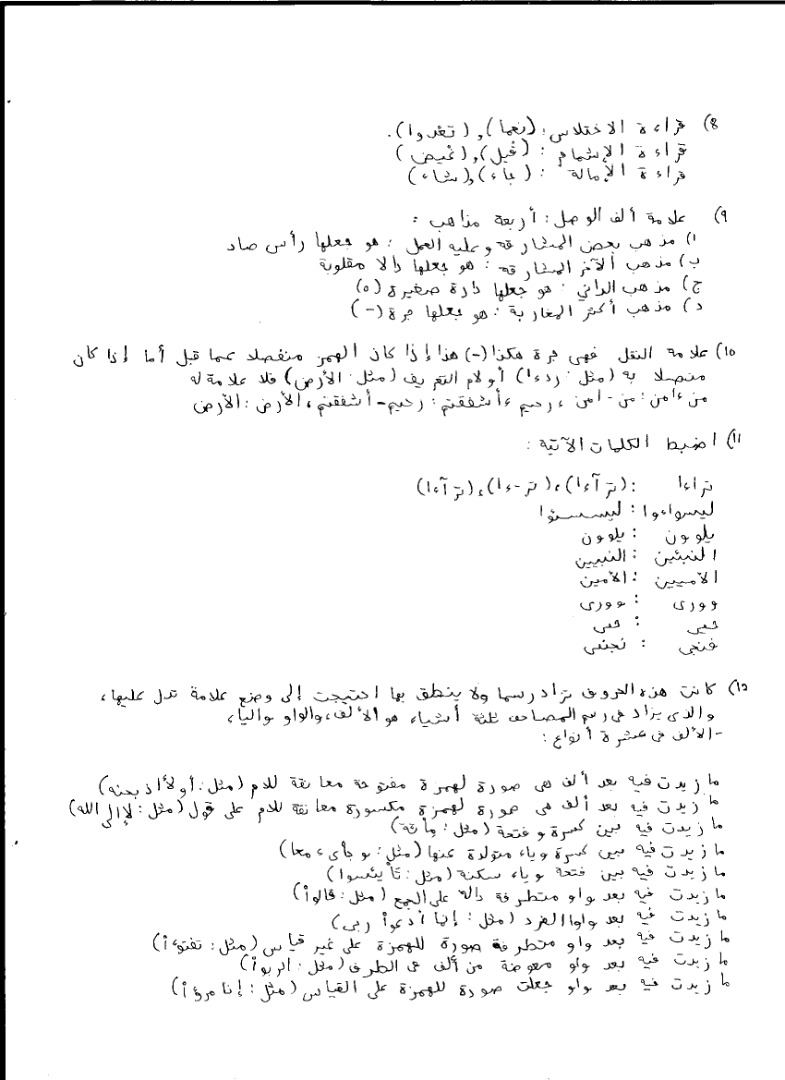 ٨) قراءة الاختلاس: (نعما)، (تعدوا).
قراءة الإشمام : (قيل)، (غيض)
قراءة الإمالة : (جاء)، (شاء)
٩) علامة ألف الوصل: أربعة مذاهب :
ا) مذهب بعض المشارقة وعليه العمل : هو جعلها رأس صاد
ب) مذهب الآخر المشارقة : هو جعلها دالا مقلوبة
ج) مذهب الداني : هو جعلها دارة صغيرة (٥)
د) مذهب أكثر المغاربة : هو جعلها جرة (-)
١٠) علامة النقل فهي جرة هكذا (-) هذا إذا كان الهمز منفصلا عما قبل أما إذا كان
متصلا به (مثل : ردءا) أو لام التعريف (مثل: الأرض) فلا علامة له
من ءامن : من - امن ، رحيم ءأشفقتم : رحيم - أشفقتم ، الأرض : الأرض
١١) اضبط الكلمات الآتية :
تراءا : (ترآءا)، (تر-ءا)، (ترآءا)
ليسواءوا :
يلوون : يلوون
النبئين : النبيين
الأميين : الأمين
وورى : وورى
حيى : حيى
فنجى : نجى
١٢) كانت هذه الحروف تزاد رسما ولا ينطق بها احتيجت إلى وضع علامة تدل عليها،
والذى يزاد فى رسم المصاحف ثلثة أشياء هو الألف، والواو، والياء،
-الألف فى عشرة أنواع :
ما زيدت فيه بعد ألف هى صورة لهمزة مفتوحة معانقة للام (مثل : أولأاذبحنه)
ما زيدت فيه بعد ألف هى صورة لهمزة مكسورة معانقة للام على قول (مثل : لإالى الله)
ما زيدت فيه بين كسرة و فتحة (مثل : مائة)
ما زيدت فيه بين كسرة وياء متولدة عنها (مثل : وجاىء معا)
ما زيدت فيه بين فتحة وياء سكنة (مثل : تاْيئسوا)
ما زيدت فيه بعد واو متطرفة دالة على الجمع (مثل : قالواْ)
ما زيدت فيه بعد واو الفرد (مثل : إنما أدعواْ ربى)
ما زيدت فيه بعد واو متطرفة صورة للهمزة على غير قياس (مثل : تفتؤاْ)
ما زيدت فيه بعد واو معوضة من ألف فى الطرف (مثل : الربواْ)
ما زيدت فيه بعد واو جعلت صورة للهمزة على القياس (مثل : إن امرؤاْ)